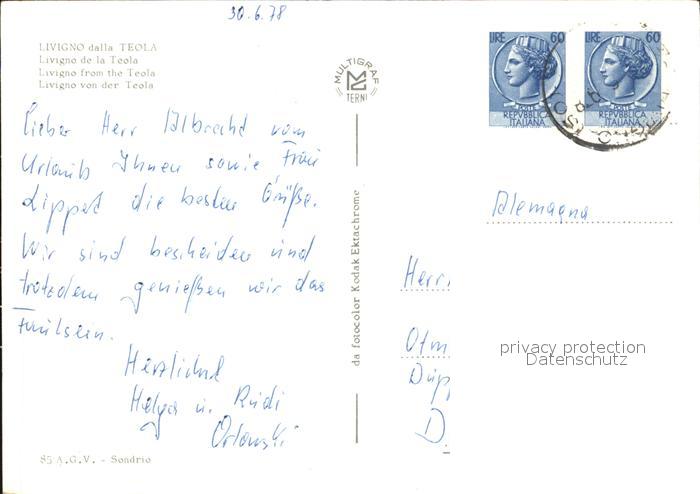 30.6.78
LIVIGNO dalla TEOLA
Livigno de la Teola
Livigno from the Teola
Livigno von der Teola
Lieber Herr Albrecht vom
Urlaub Ihnen sowie Frau
Lippet die besten Grüße.
Wir sind bescheiden und
trotzdem genießen wir das
Faulsein.
Herzlichst
Helga u. Rudi
Orlowski
85 A.G.V. - Sondrio
MULTIGRAF
TERNI
da fotocolor Kodak Ektachrome
LIRE 60
POSTE
REPVBBLICA
ITALIANA
LIRE 60
POSTE
REPVBBLICA
ITALIANA
Alemagna
Herr
Otm
Düpp
D
privacy protection
Datenschutz